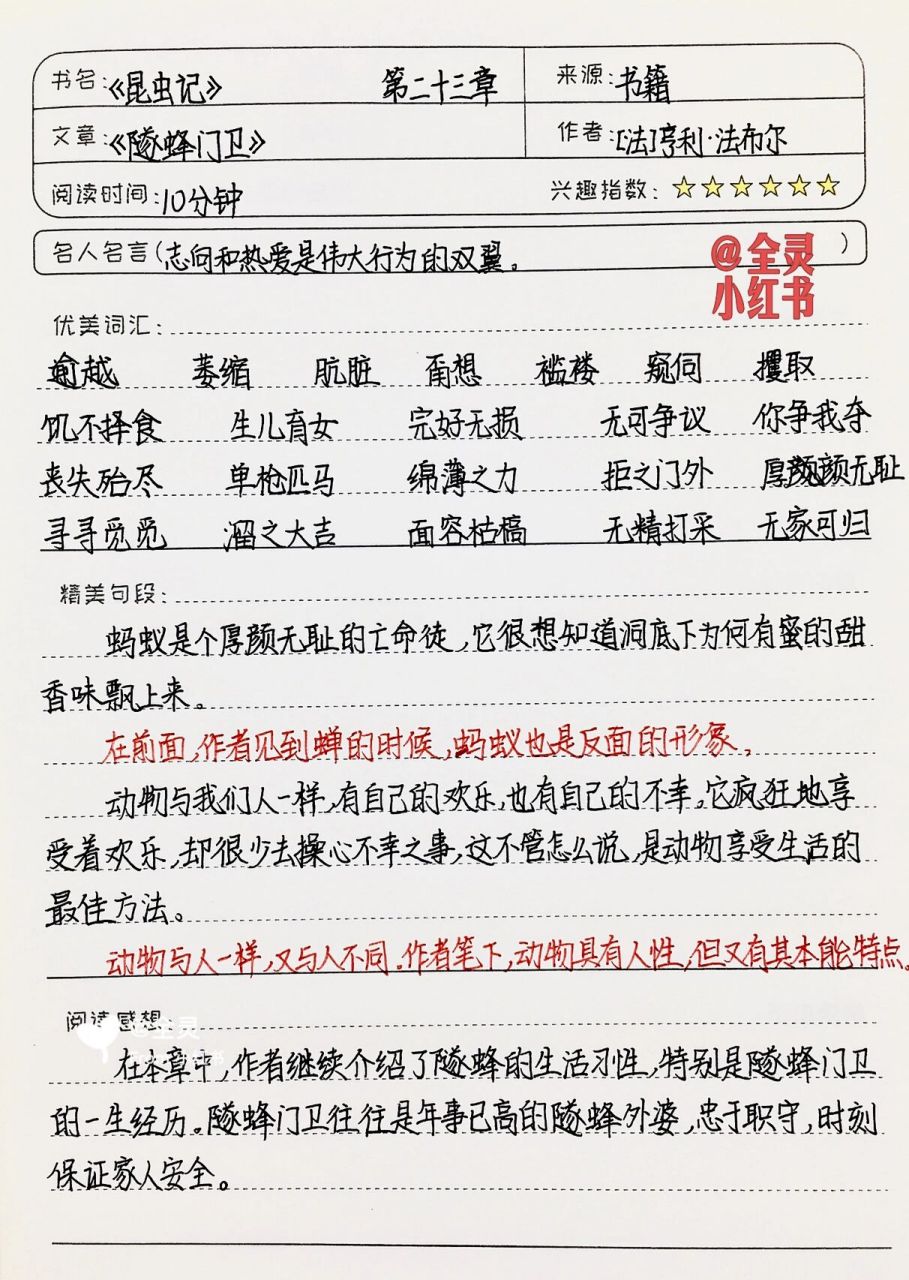 书名:《昆虫记》 第二十三章 来源:书籍
文章:《隧蜂门卫》 作者:[法]亨利·法布尔
阅读时间:10分钟 兴趣指数:☆☆☆☆☆☆
名人名言(志向和热爱是伟大行为的双翼。)
@全灵
小红书
优美词汇:
逾越 萎缩 肮脏 甭想 褴褛 窥伺 攫取
饥不择食 生儿育女 完好无损 无可争议 你争我夺
丧失殆尽 单枪匹马 绵薄之力 拒之门外 厚颜无耻
寻寻觅觅 溜之大吉 面容枯槁 无精打采 无家可归
精美句段:
蚂蚁是个厚颜无耻的亡命徒,它很想知道洞底下为何有蜜的甜
香味飘上来。
在前面,作者见到蝉的时候,蚂蚁也是反面的形象。
动物与我们人一样,有自己的欢乐,也有自己的不幸,它疯狂地享
受着欢乐,却很少去操心不幸之事,这不管怎么说,是动物享受生活的
最佳方法。
动物与人一样,又与人不同.作者笔下,动物具有人性,但又有其本能特点。
阅读感想:
@全灵
在本章中,作者继续介绍了隧蜂的生活习性,特别是隧蜂门卫
的一生经历。隧蜂门卫往往是年事已高的隧蜂外婆,忠于职守,时刻
保证家人安全。